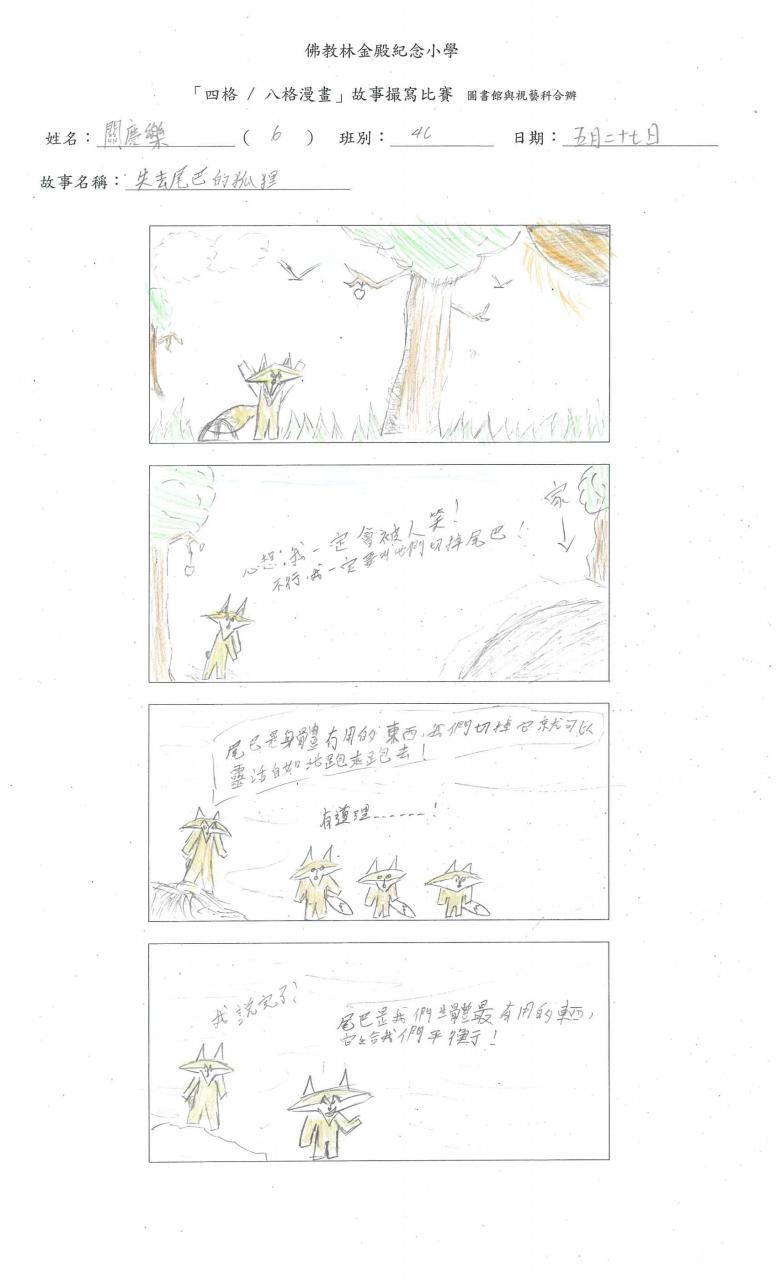 佛教林金殿紀念小學
「四格 / 八格漫畫」故事撮寫比賽 圖書館與視藝科合辦
姓名：關慶樂 ( 6 ) 班別： 4C 日期：五月二十七日
故事名稱：失去尾巴的狐狸
家
心想：我一定會被人笑！
不行，我一定要叫他們切掉尾巴！
尾巴是身體有用的東西，我們切掉它就可以
靈活自如地跑來跑去！
有道理------！
我說完了！
尾巴是我們身體最有用的東西，
它給我們平衡！